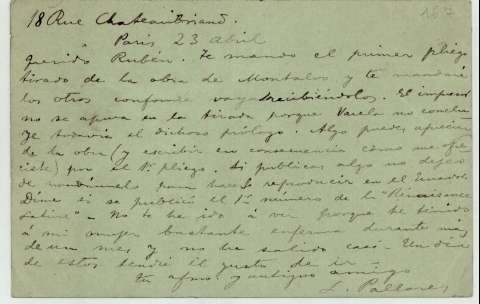 18 Rue Chateaubriand.
Paris 23 Abril
Querido Rubén. Te mando el primer pliego
tirado de la obra de Montalvo y te mandaré
los otros conforme vaya recibiéndolos. El impresor
no se apura en la tirada porque Varela no concluye
todavía el dichoso prólogo. Algo puedes apreciar
de la obra (y escribir en consecuencia como me ofre
ciste) por el 1er pliego. Si publicas algo no dejes
de para hacerlo reproducir en el Ecuador.
Dime si se publicó el 1er número de la "Renaissance
Latine" - No te he ido á ver porque he tenido
á mi mujer bastante enferma durante mas
de un mes y no he salido casi. Un día
de estos tendré el gusto de ir.
tu afmo. y antiguo amigo
L. Pallares